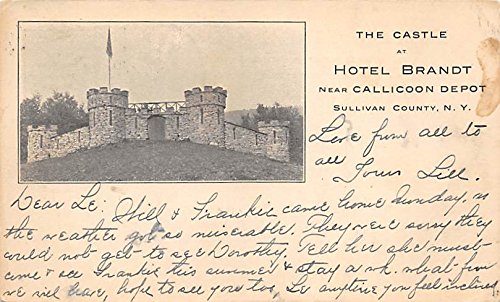 THE CASTLE
AT
HOTEL BRANDT
NEAR CALLICOON DEPOT
SULLIVAN COUNTY, N. Y.
Love from all to
all
Yours Lill.
Dear Le: Will & Frankie came home Sunday, as
the weather got so miserable. They were sorry they
could not get to see Dorothy. Tell her she must
come & see Frankie this summer & stay a wk. what fun
we will have, hope to see you too, Le anytime you feel inclined